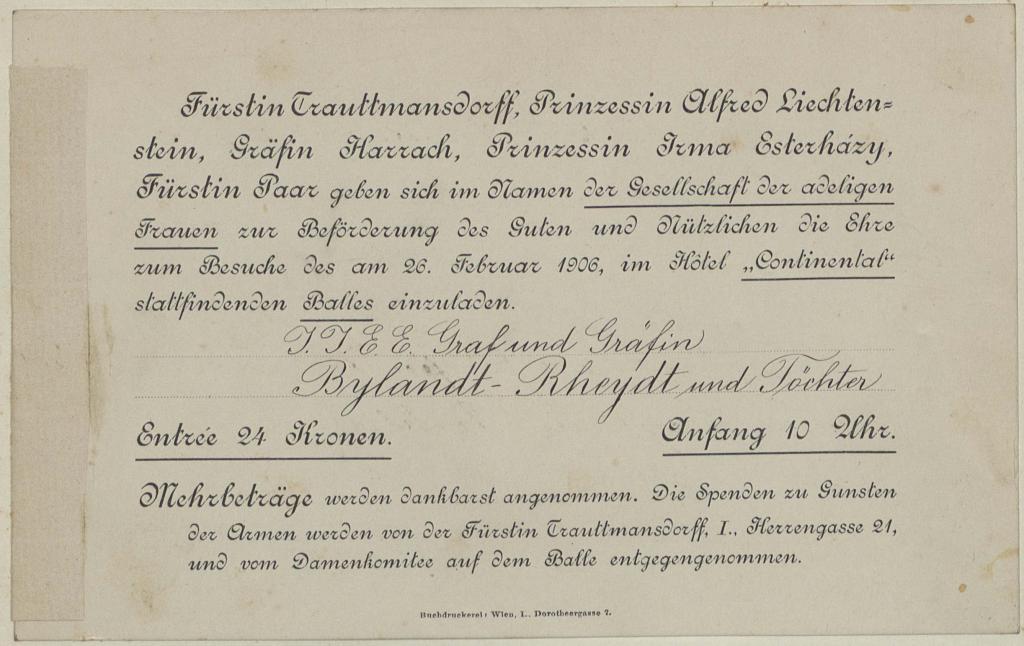 Fürstin Trauttmansdorff, Prinzessin Alfred Liechten=
stein, Gräfin Harrach, Prinzessin Irma Esterházy,
Fürstin Paar geben sich im Namen der Gesellschaft der adeligen
Frauen zur Beförderung des Guten und Nützlichen die Ehre
zum Besuche des am 26. Februar 1906, im Hôtel „Continental“
stattfindenden Balles einzuladen.
I. I. E. E. Graf und Gräfin
Bylandt-Rheydt und Töchter
Entrée 24 Kronen. Anfang 10 Uhr.
Mehrbeträge werden dankbarst angenommen. Die Spenden zu Gunsten
der Armen werden von der Fürstin Trauttmansdorff, I., Herrengasse 21,
und vom Damenkomitee auf dem Balle entgegengenommen.
Buchdruckerei: Wien, I., Dorotheergasse 7.